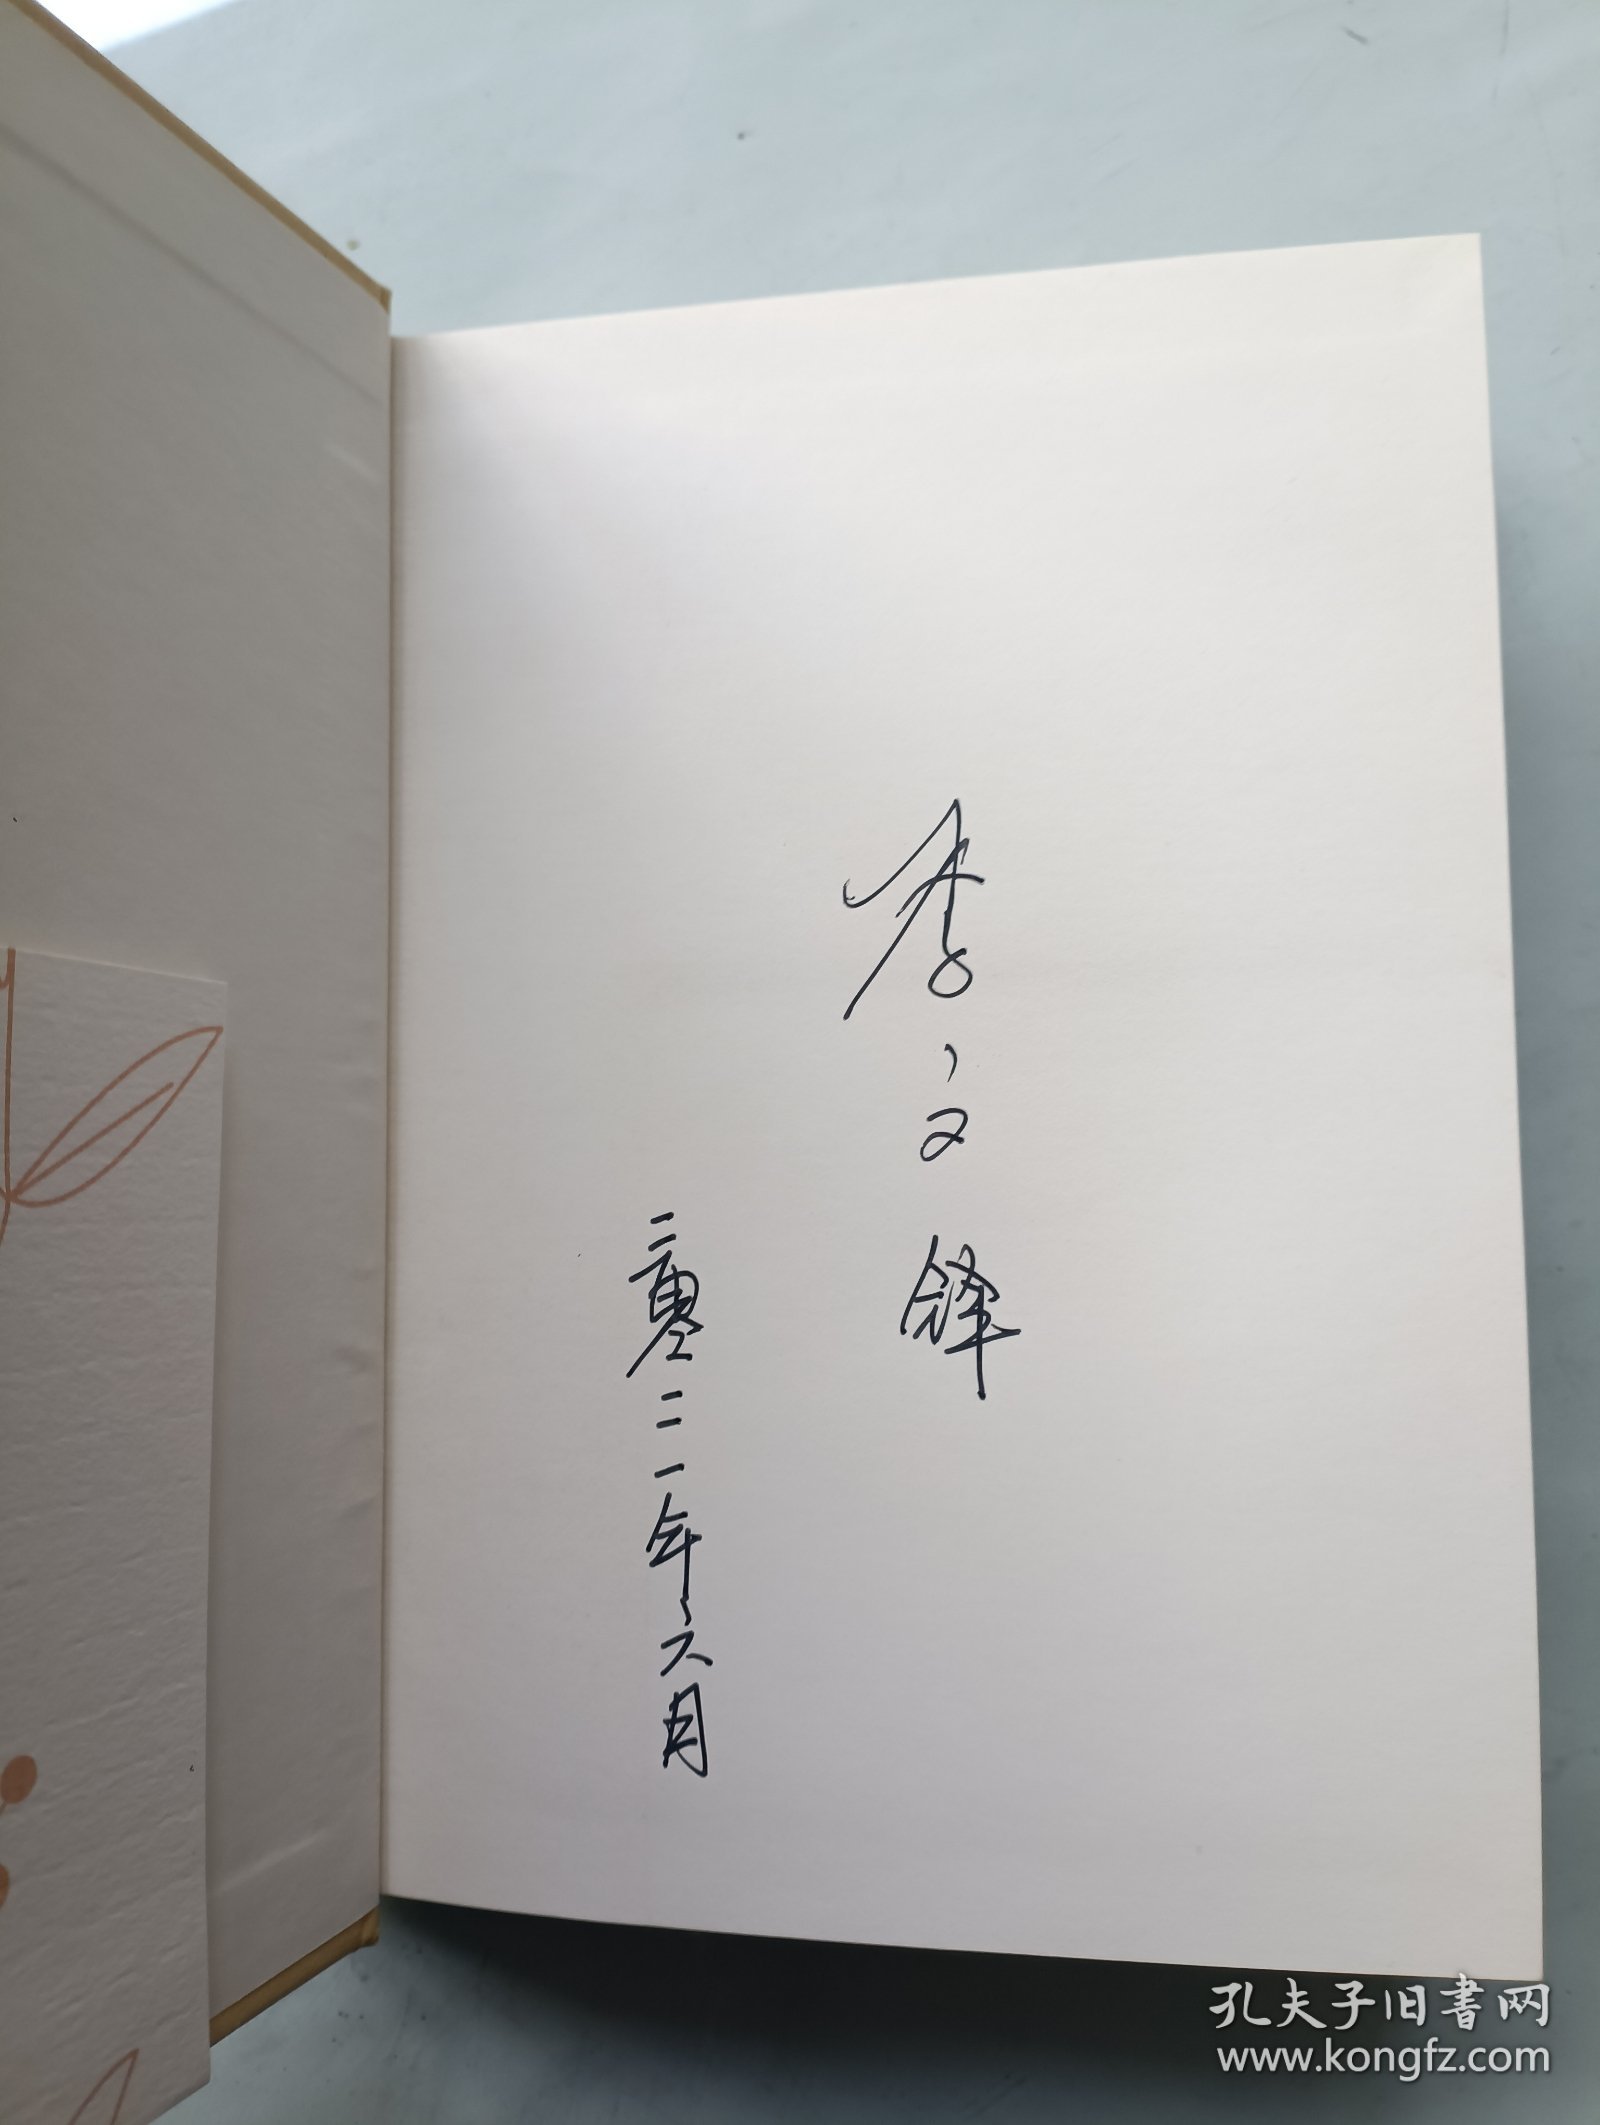 李文锋
二零二一年六月
孔夫子旧书网
www.kongfz.com